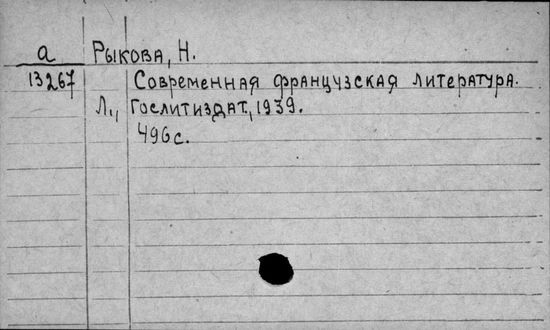 а Рыкова, Н.
13267 Современная французская литература.
Л., Гослитиздат, 1939.
496с.